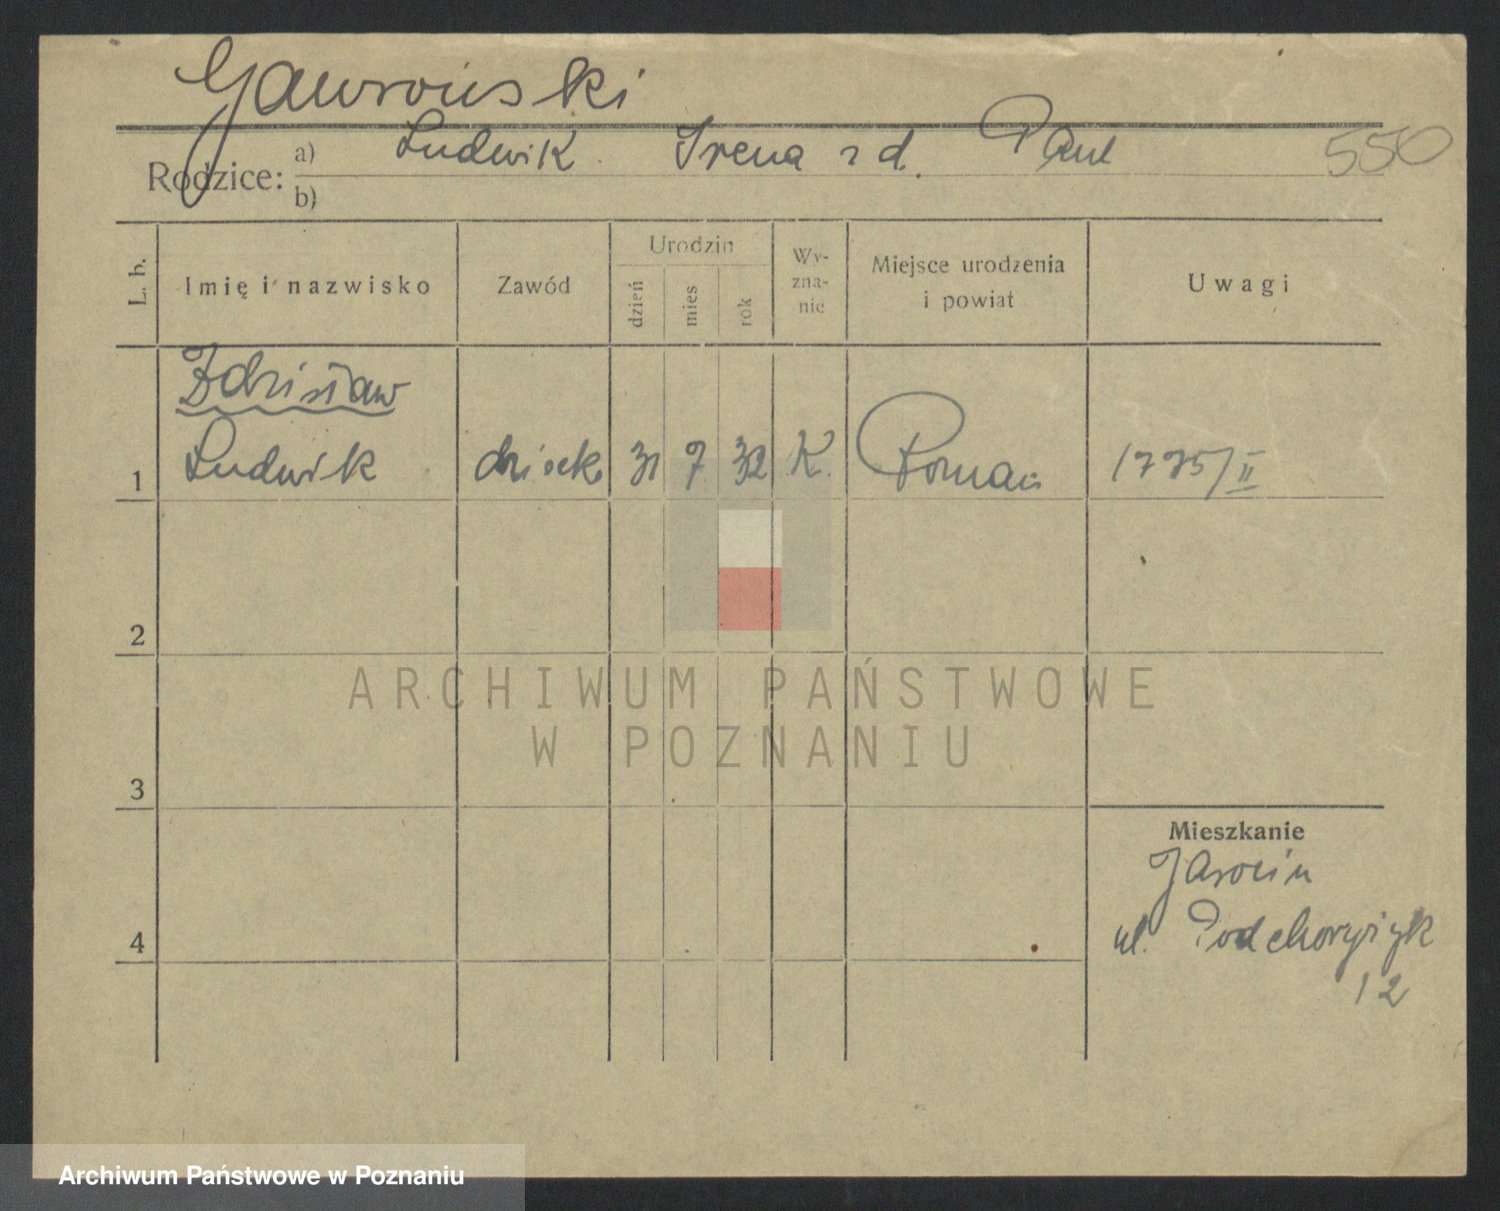 Gawroński
Rodzice: a) Ludwik Irena z d. Paul 550
b)
L. b. Imię i nazwisko Zawód Urodzin dzień mies rok Wyznanie Miejsce urodzenia i powiat Uwagi
Zdzisław
1 Ludwik dziecko 31 7 32 K. Poznań 1775/II
2
3
Mieszkanie
Jarocin
ul. Podchorążych
12
4
ARCHIWUM PAŃSTWOWE
W POZNANIU
Archiwum Państwowe w Poznaniu